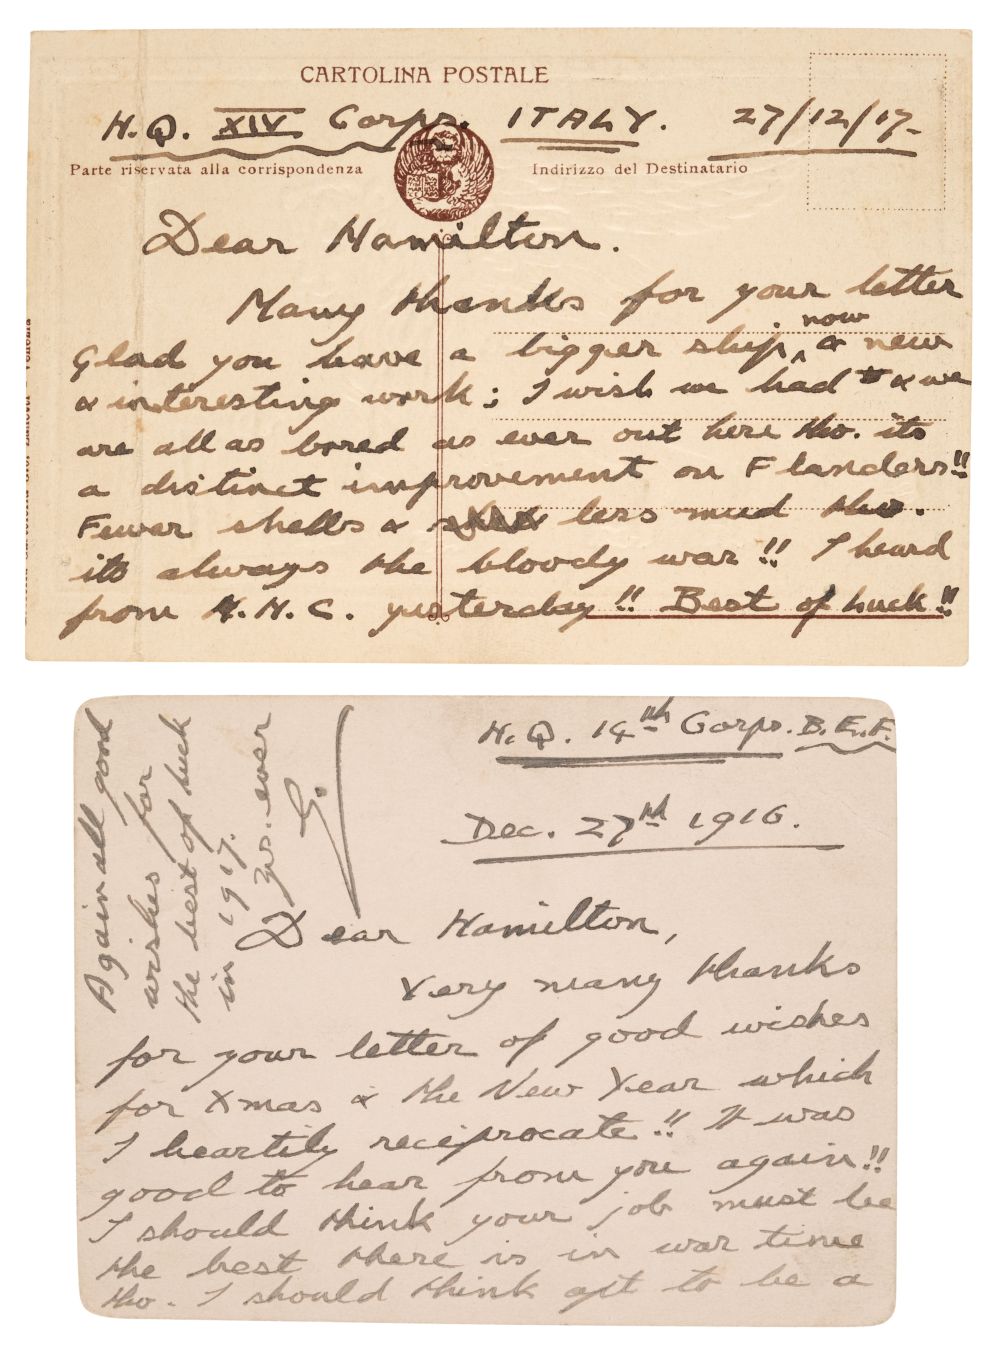 CARTOLINA POSTALE
H.Q. XIV Corps. ITALY. 27/12/17.
Parte riservata alla corrispondenza
Indirizzo del Destinatario
Dear Hamilton.
Many thanks for your letter
Glad you have a bigger ship, now & new
& interesting work; I wish we had & we
are all as bored as ever out here tho. its
a distinct improvement on Flanders!!
Fewer shells & less mud tho.
its always the bloody war!! I heard
from yesterday!! Best of luck!!
H.Q. 14th Corps. B.E.F.
Dec. 27th 1916.
Dear Hamilton,
Very many thanks
for your letter of good wishes
for Xmas & the New Year which
I heartily reciprocate!! It was
good to hear from you again!!
I should think your job must be
the best there is in war time
tho. I should think apt to be a
Again all good
wishes for
the best of luck
in 1917.
Yrs. ever
G.